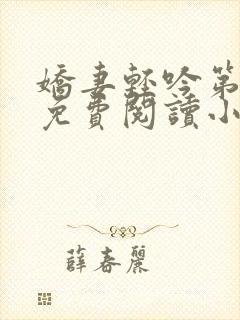 嬌妻輕吟第
免費閱讀小
薛春麗